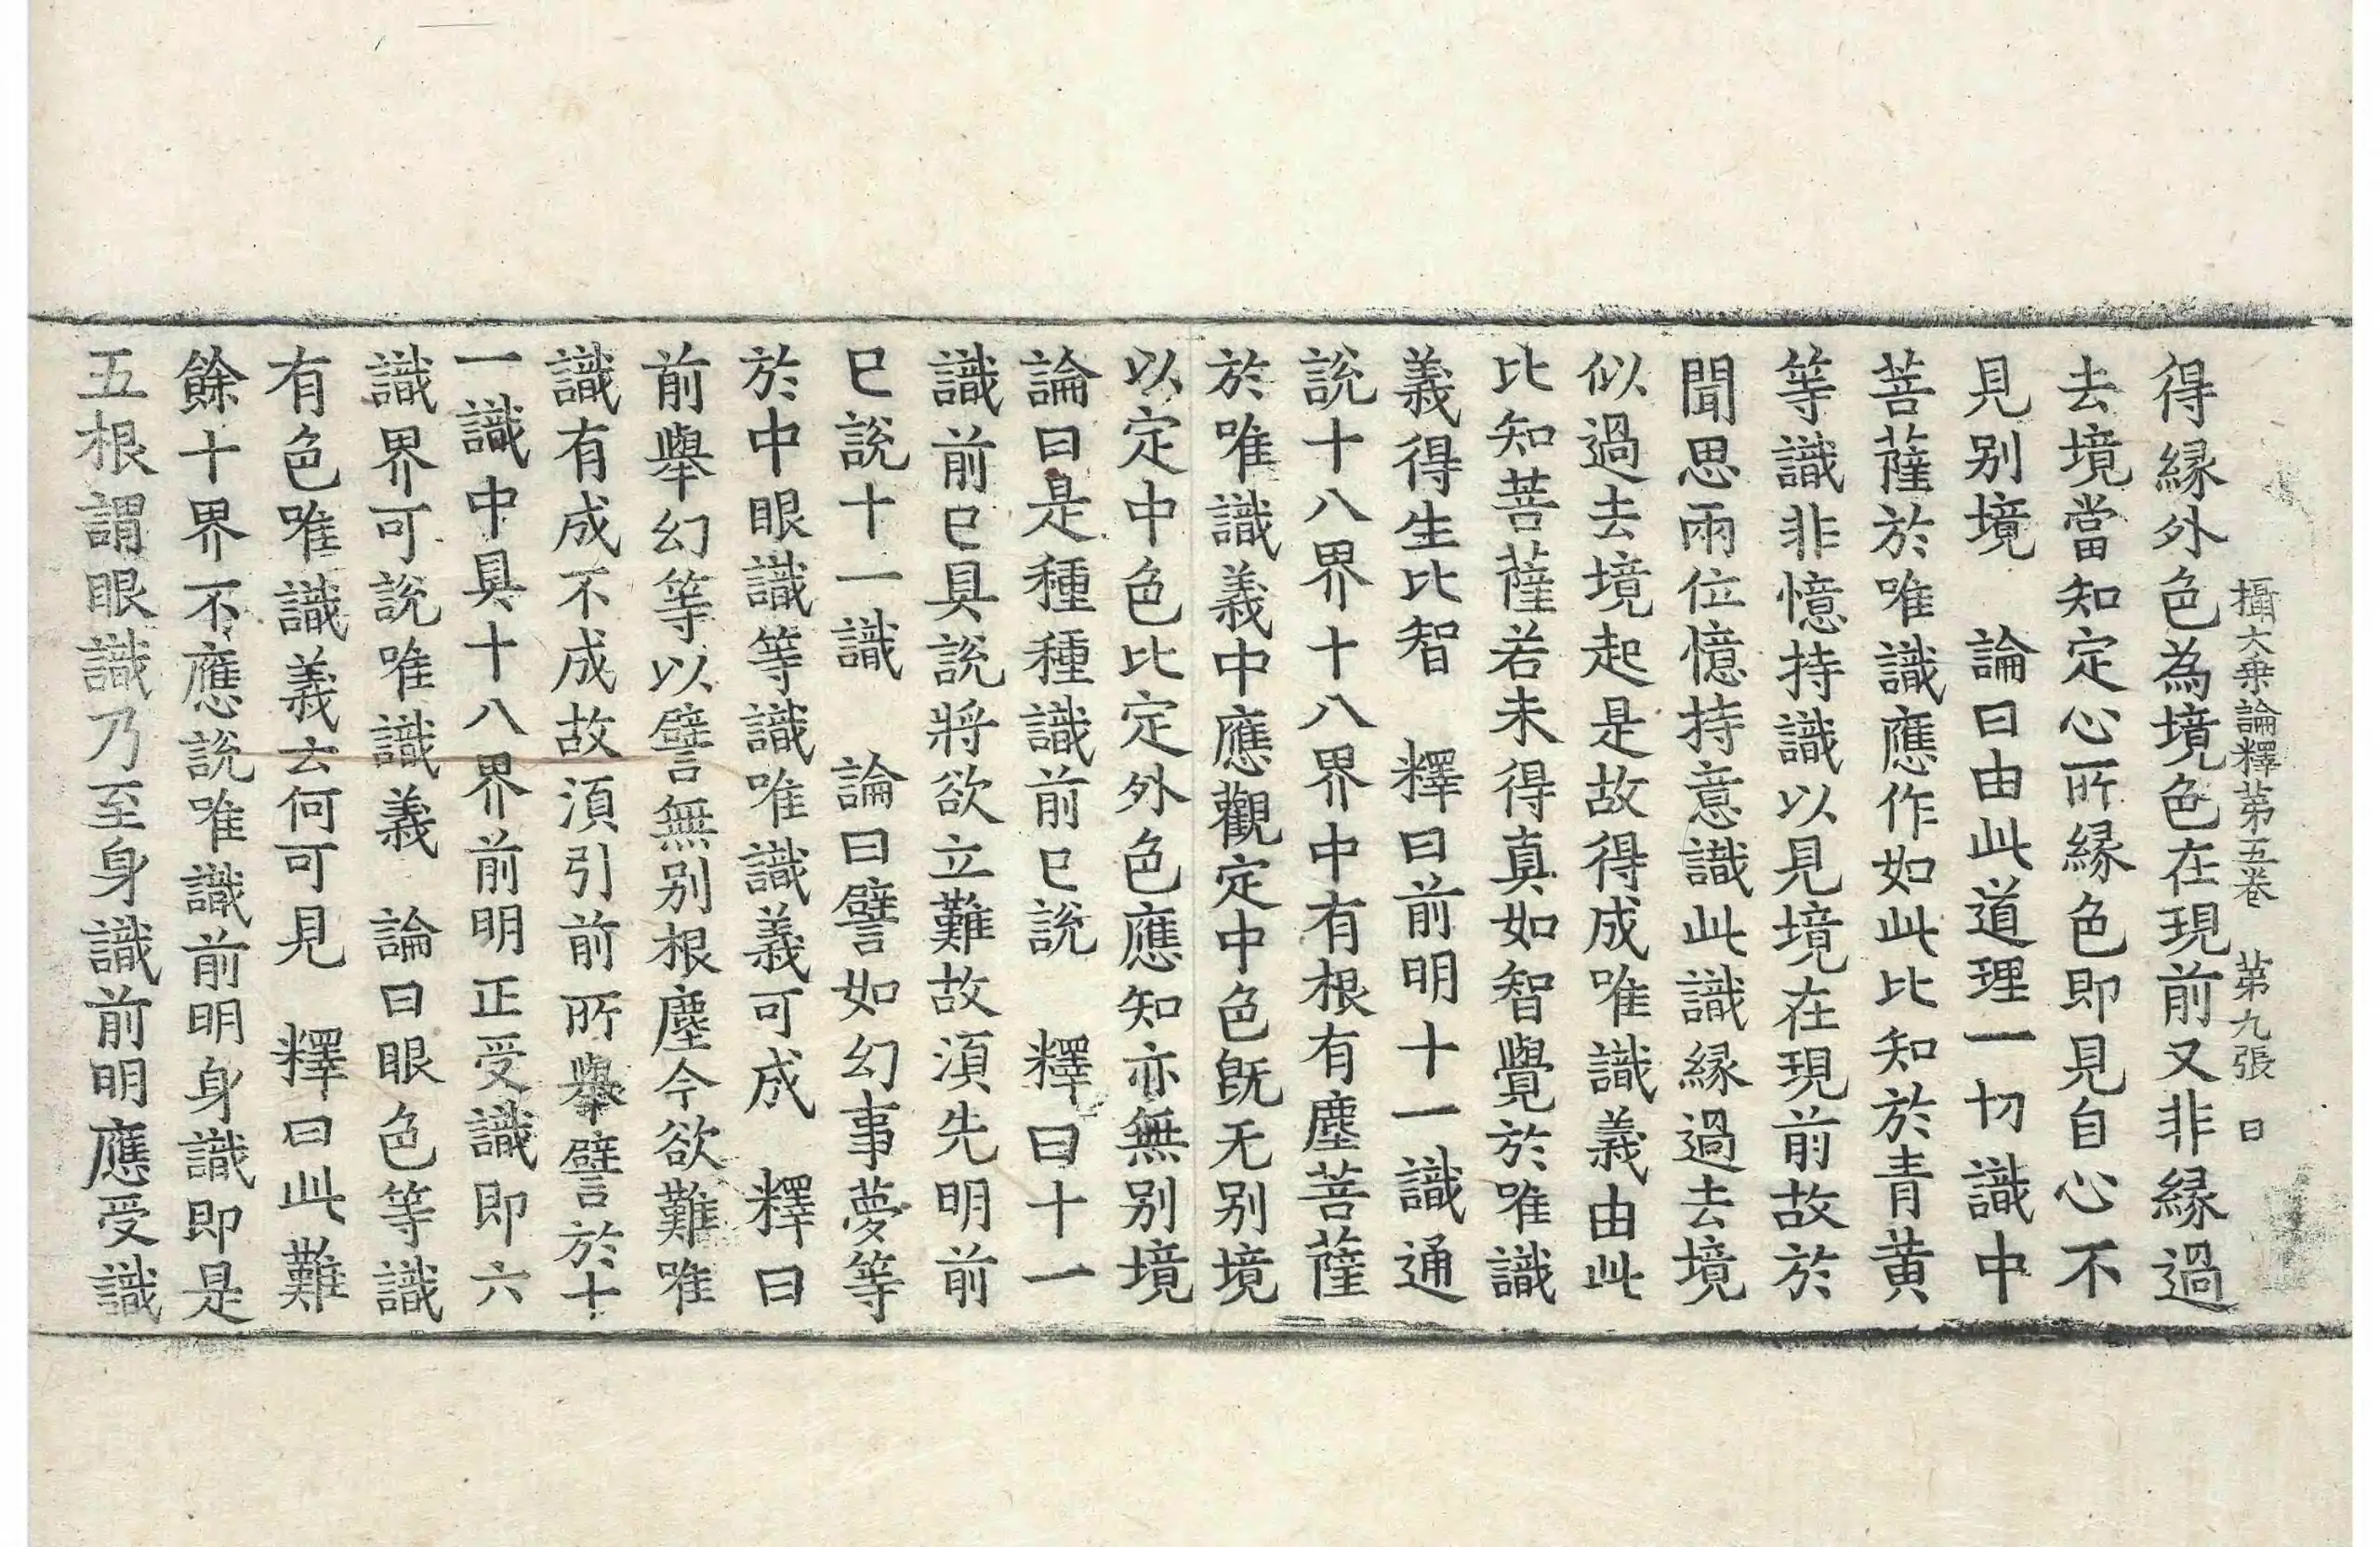 攝大乗論釋苐五卷　苐九張　日
得緣外色為境色在現前又非緣過
去境當知定心所緣色即見自心不
見别境　論曰由此道理一切識中
菩薩於唯識應作如此比知於青黄
等識非憶持識以見境在現前故於
聞思兩位憶持意識此識緣過去境
似過去境起是故得成唯識義由此
比知菩薩若未得真如智覺於唯識
義得生比智　釋曰前明十一識通
說十八界十八界中有根有塵菩薩
於唯識義中應觀定中色旣无别境
以定中色比定外色應知亦無别境
論曰是種種識前已說　釋曰十一
識前已具說將欲立難故湏先明前
已說十一識　論曰譬如幻事夢等
於中眼識等識唯識義可成　釋曰
前舉幻等以譬無别根塵今欲難唯
識有成不成故湏引前所舉譬於十
一識中具十八界前明正受識即六
識界可說唯識義　論曰眼色等識
有色唯識義云何可見　釋曰此難
餘十界不應說唯識前明身識即是
五根謂眼識乃至身識前明應受識